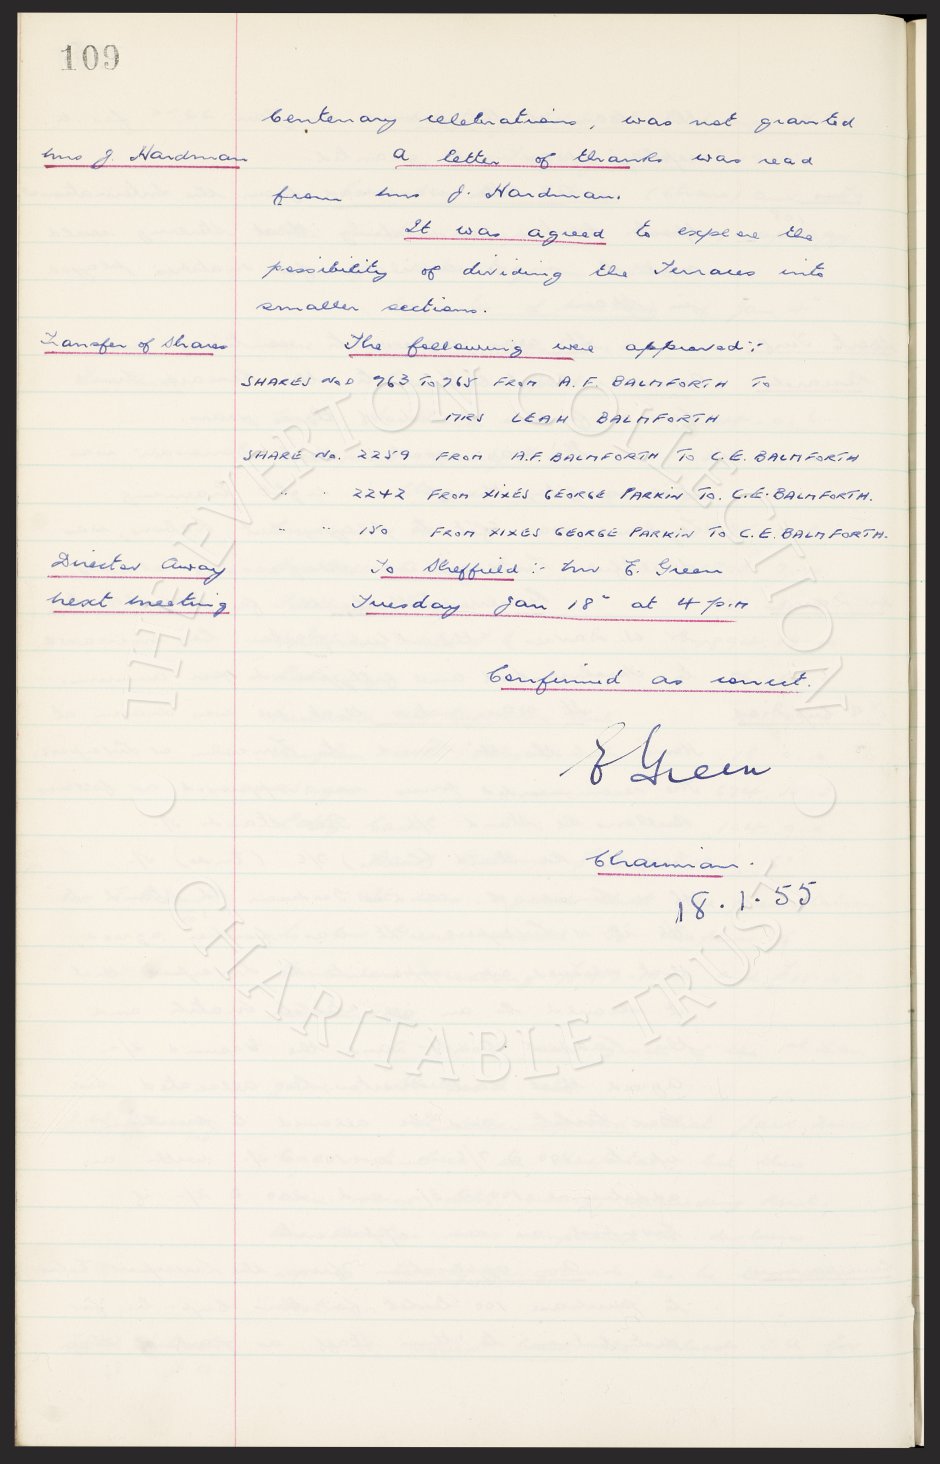 109
Centenary celebrations, was not granted
Mrs J Hardman A letter of thanks was read
from Mrs J. Hardman.
It was agreed to explore the
possibility of dividing the Terraces into
smaller sections.
Transfer of Shares The following were approved :-
SHARES NoD 963 TO 965 FROM A. F. BALMFORTH TO
MRS LEAH BALMFORTH
SHARE No. 2259 FROM A.F. BALMFORTH TO C.E. BALMFORTH
" " 2242 FROM XIXES GEORGE PARKIN TO. C.E. BALMFORTH.
" " 150 FROM XIXES GEORGE PARKIN TO C.E. BALMFORTH.
Director Away To Sheffield :- Mr E. Green
Next Meeting Tuesday Jan 18" at 4 p.m
Confirmed as correct.
E Green
Chairman.
18.1.55
THE EVERTON COLLECTION
CHARITABLE TRUST